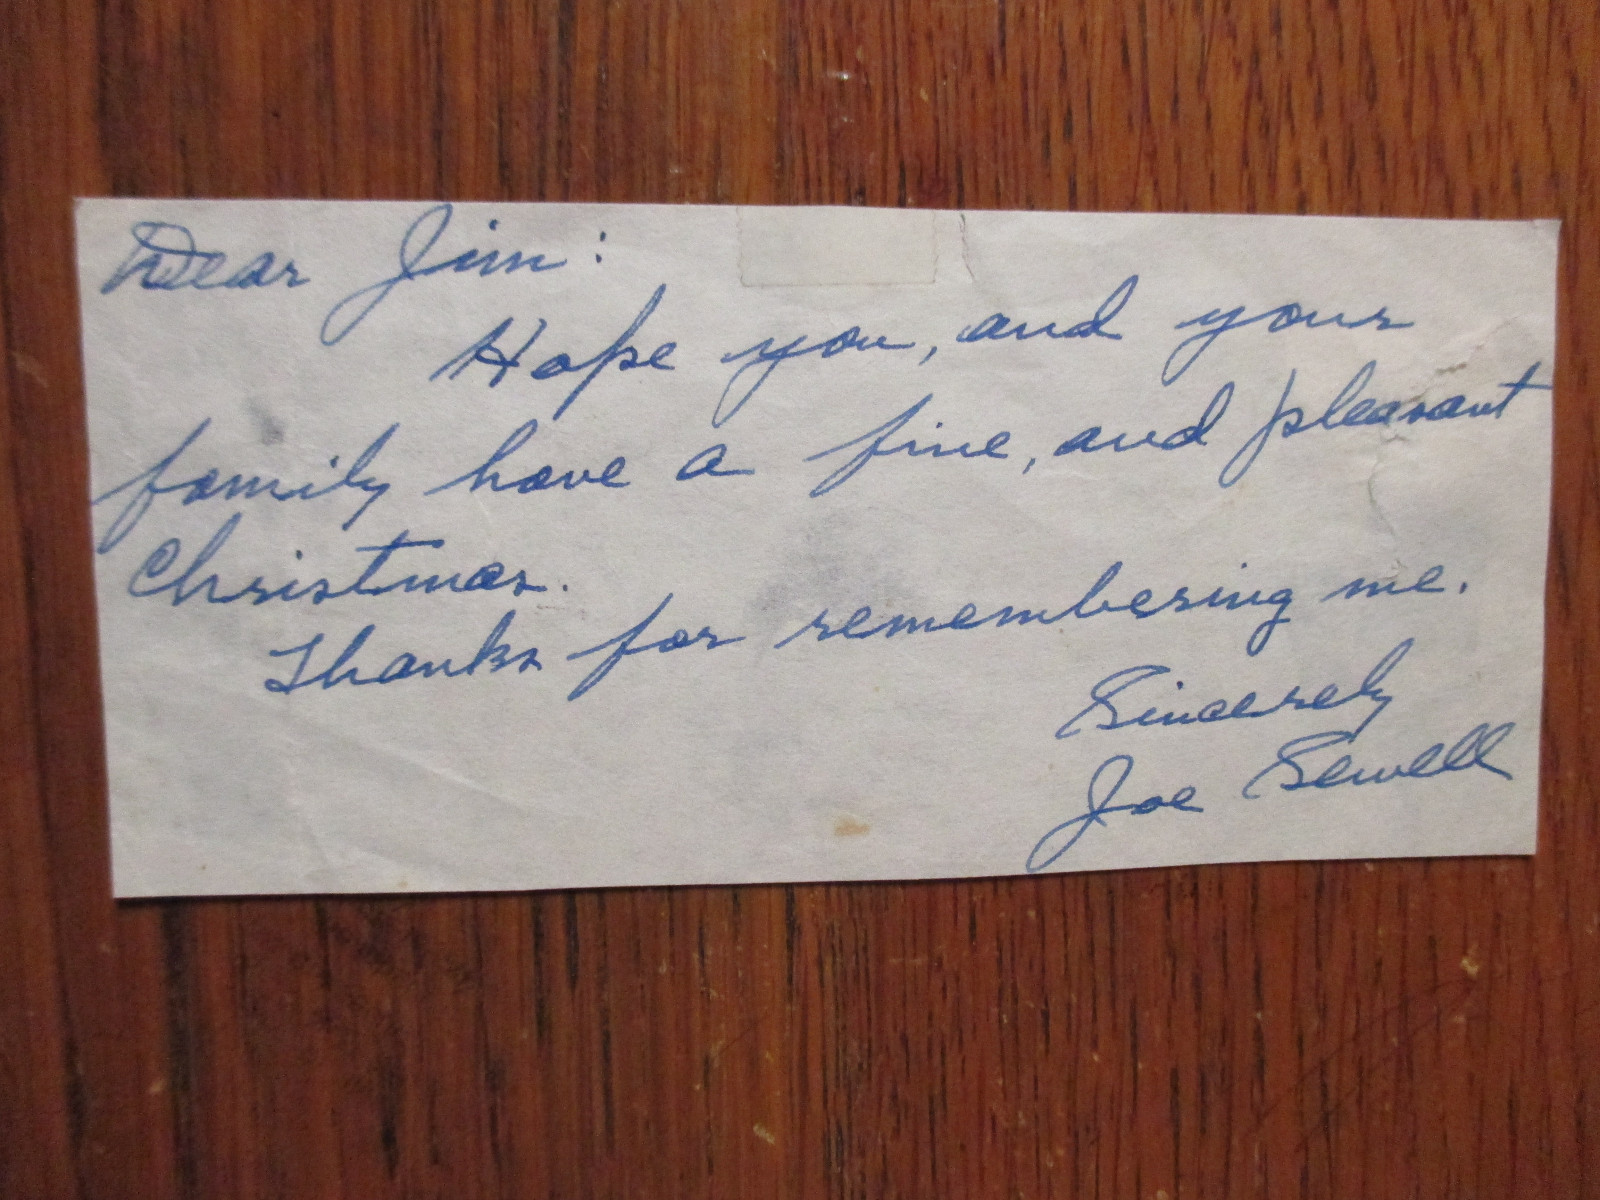 Dear Jim:
Hope you, and your
family have a fine, and pleasant
Christmas.
Thanks for remembering me.
Sincerely
Joe Sewell